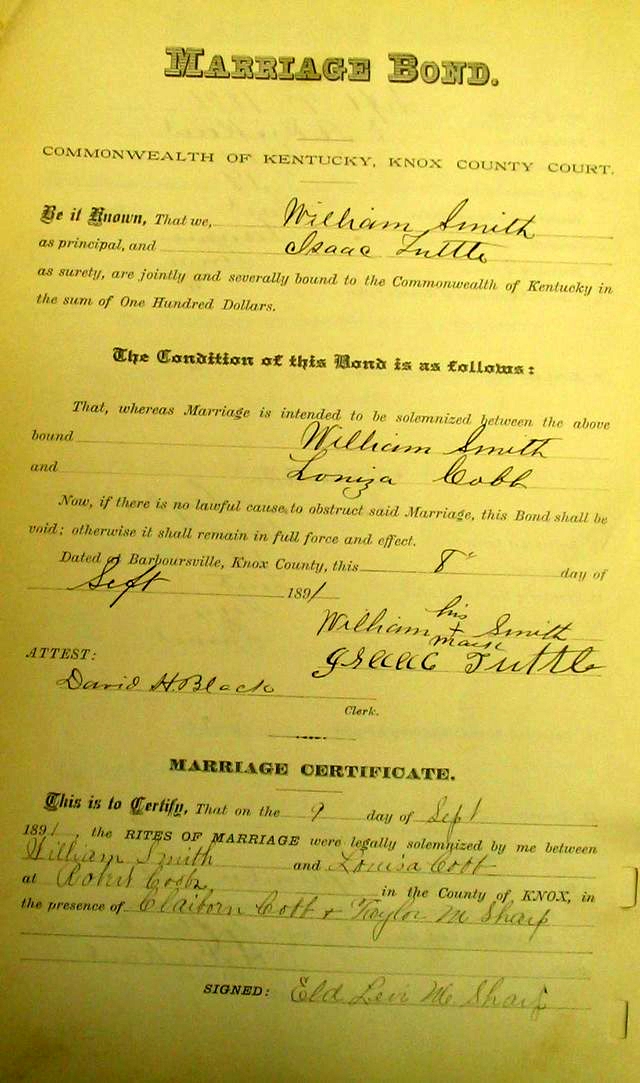 MARRIAGE BOND.
COMMONWEALTH OF KENTUCKY, KNOX COUNTY COURT.
Be it Known, That we, William Smith
as principal, and Isaac Tuttle
as surety, are jointly and severally bound to the Commonwealth of Kentucky in
the sum of One Hundred Dollars.
The Condition of this Bond is as follows:
That, whereas Marriage is intended to be solemnized between the above
bound William Smith
and Louiza Cobb
Now, if there is no lawful cause to obstruct said Marriage, this Bond shall be
void; otherwise it shall remain in full force and effect.
Dated at Barboursville, Knox County, this 8" day of
Sept 1891
his
William + Smith
mark
ATTEST: Isaac Tuttle
David H. Black
Clerk.
MARRIAGE CERTIFICATE.
This is to Certify, That on the 9 day of Sept
1891, the RITES OF MARRIAGE were legally solemnized by me between
William Smith and Louisa Cobb
at Cobbs in the County of KNOX, in
the presence of Claiborn Cobb + Taylor M Sharp
SIGNED: Eld Levi M Sharp